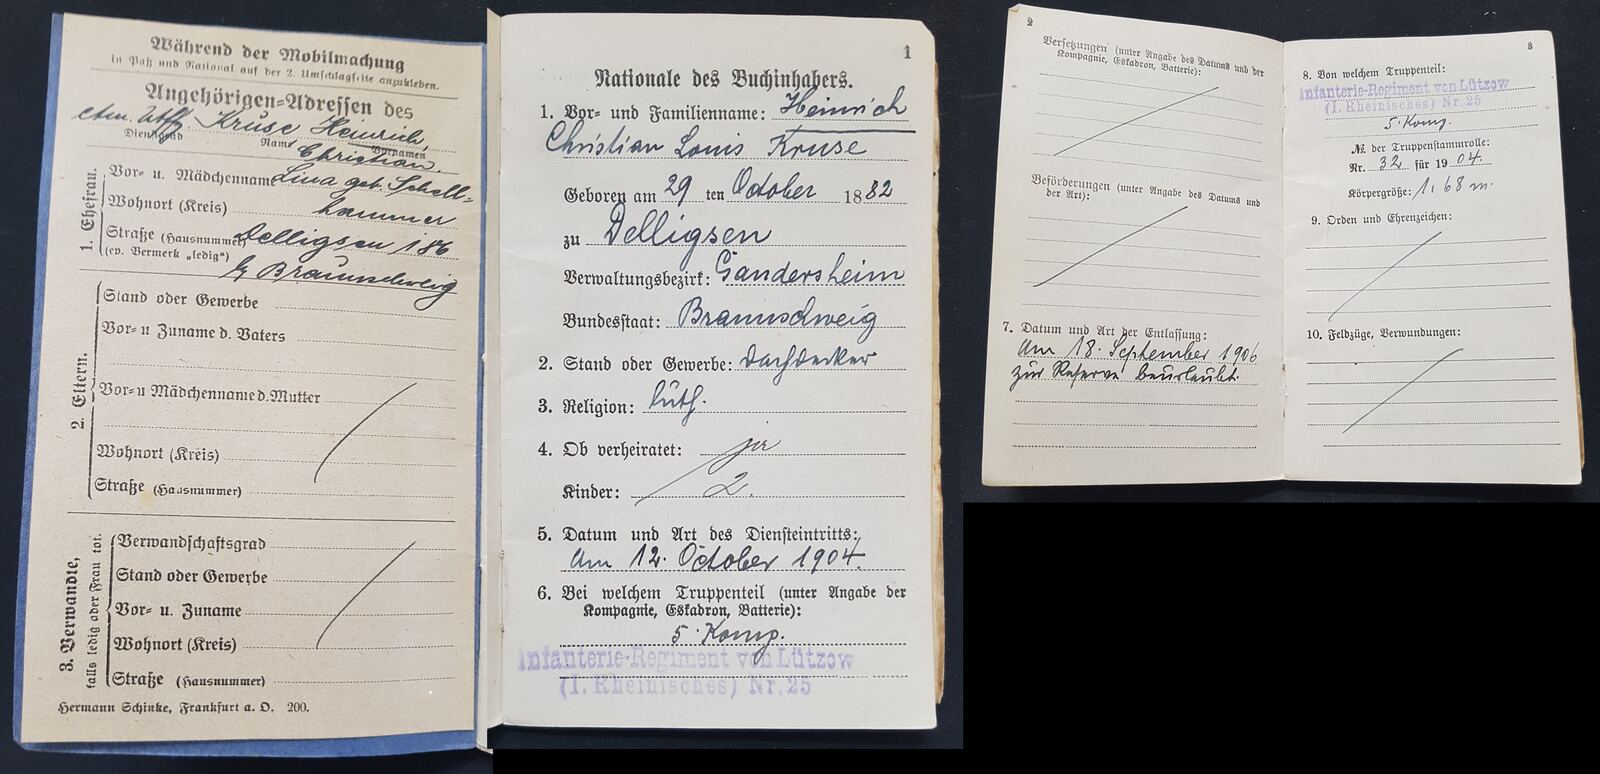 Während der Mobilmachung
in Paß und National auf der 2. Umschlagseite anzukleben.
Angehörigen-Adressen des
Kruse Heinrich,
Dienstgrad Name Vornamen
Christian.
1. Ehefrau.
Vor- u. Mädchenname Lina geb. Schell-
Wohnort (Kreis) hammer
Straße (Hausnummer) Delligsen 186
(ev. Vermerk „ledig“)
b/ Braunschweig
2. Eltern.
Stand oder Gewerbe
Vor- u Zuname d. Vaters
Vor- u Mädchenname d. Mutter
Wohnort (Kreis)
Straße (Hausnummer)
3. Verwandte,
falls ledig oder Frau tot.
Verwandschaftsgrad
Stand oder Gewerbe
Vor- u. Zuname
Wohnort (Kreis)
Straße (Hausnummer)
Hermann Schinke, Frankfurt a. O. 200.
1
Nationale des Buchinhabers.
1. Vor- und Familienname: Heinrich
Christian Louis Kruse
Geboren am 29 ten October 1882
zu Delligsen
Verwaltungsbezirk: Gandersheim
Bundesstaat: Braunschweig
2. Stand oder Gewerbe: Dachdecker
3. Religion: luth.
4. Ob verheiratet: ja
Kinder: 2.
5. Datum und Art des Diensteintritts:
Am 12. October 1904.
6. Bei welchem Truppenteil (unter Angabe der
Kompagnie, Eskadron, Batterie):
5. Komp.
Infanterie-Regiment von Lützow
(I. Rheinisches) Nr. 25
2
Versetzungen (unter Angabe des Datums und der
Kompagnie, Eskadron, Batterie):
Beförderungen (unter Angabe des Datums und
der Art):
7. Datum und Art der Entlassung:
Am 18. September 1906
zur Reserve beurlaubt.
3
8. Von welchem Truppenteil:
Infanterie-Regiment von Lützow
(I. Rheinisches) Nr. 25
5. Komp.
№ der Truppenstammrolle:
Nr. 32 für 1904.
Körpergröße: 1,68 m.
9. Orden und Ehrenzeichen:
10. Feldzüge, Verwundungen: